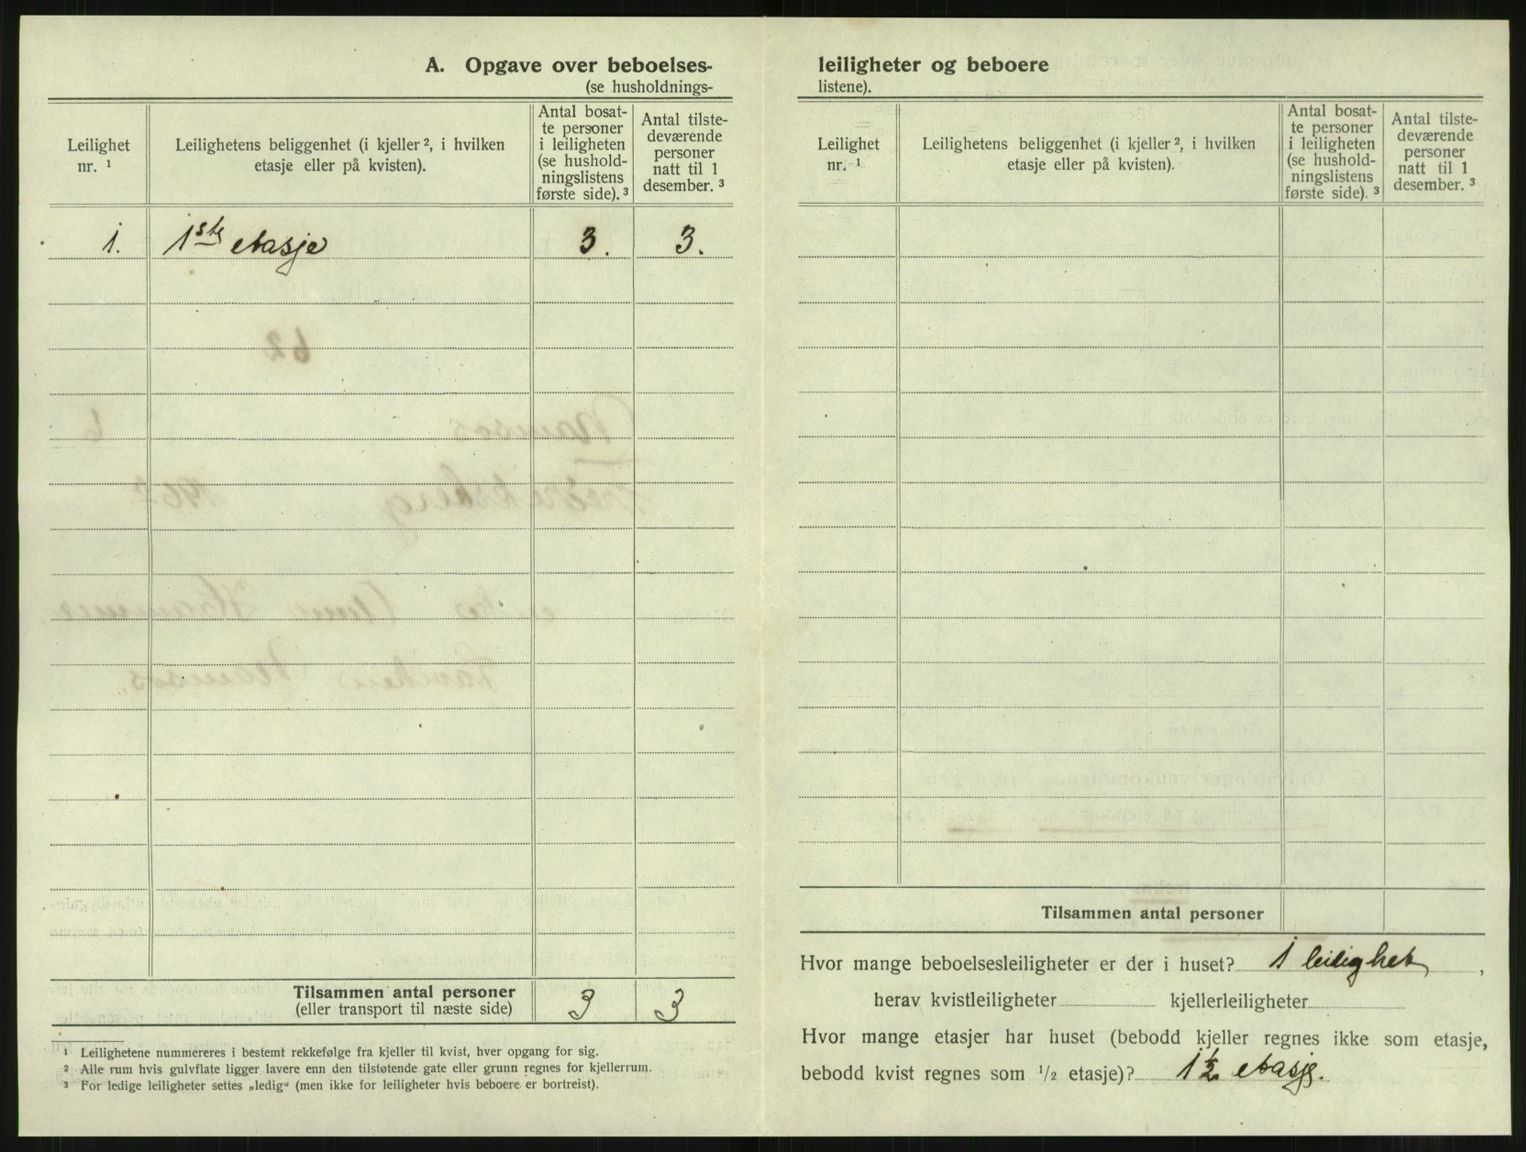 A. Opgave over beboelses-
(se husholdnings-
Leilighet
nr. ¹
Leilighetens beliggenhet (i kjeller ², i hvilken
etasje eller på kvisten).
Antal bosat-
te personer
i leiligheten
(se hushold-
ningslistens
første side). ³
Antal tilste-
deværende
personer
natt til 1
desember. ³
1. 1ste etasje 3. 3.
Tilsammen antal personer 3 3
(eller transport til næste side)
¹ Leilighetene nummereres i bestemt rekkefølge fra kjeller til kvist, hver opgang for sig.
² Alle rum hvis gulvflate ligger lavere enn den tilstøtende gate eller grunn regnes for kjellerrum.
³ For ledige leiligheter settes „ledig“ (men ikke for leiligheter hvis beboere er bortreist).
leiligheter og beboere
listene).
Leilighet
nr. ¹
Leilighetens beliggenhet (i kjeller ², i hvilken
etasje eller på kvisten).
Antal bosat-
te personer
i leiligheten
(se hushold-
ningslistens
første side). ³
Antal tilste-
deværende
personer
natt til 1
desember. ³
Tilsammen antal personer
Hvor mange beboelsesleiligheter er der i huset? 1 leilighet,
herav kvistleiligheter kjellerleiligheter
Hvor mange etasjer har huset (bebodd kjeller regnes ikke som etasje,
bebodd kvist regnes som ½ etasje)? 1½ etasje.